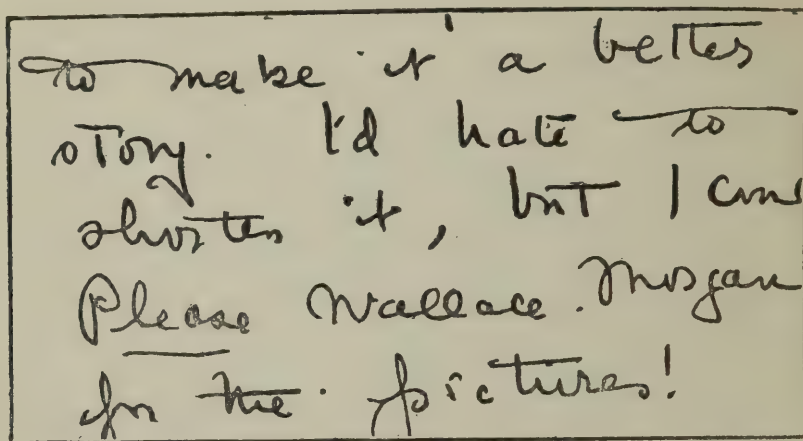 to make it a better
story. I'd hate to
shorten it, but I
Please Wallace Morgan
for the pictures!